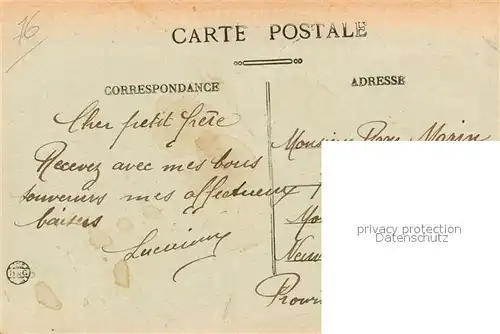 76
CARTE POSTALE
CORRESPONDANCE
ADRESSE
Cher petit frère
Recevez avec mes bons
souvenirs mes affectueux
baisers
Monsieur Marin
privacy protection
Datenschutz